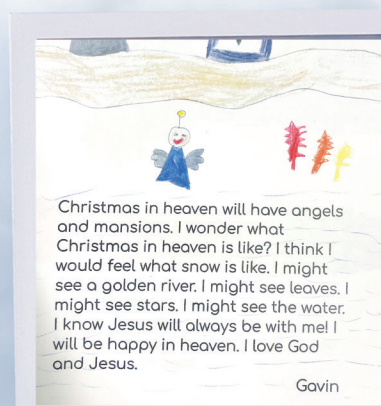 Christmas in heaven will have angels
and mansions. I wonder what
Christmas in heaven is like? I think I
would feel what snow is like. I might
see a golden river. I might see leaves. I
might see stars. I might see the water.
I know Jesus will always be with me! I
will be happy in heaven. I love God
and Jesus.
Gavin